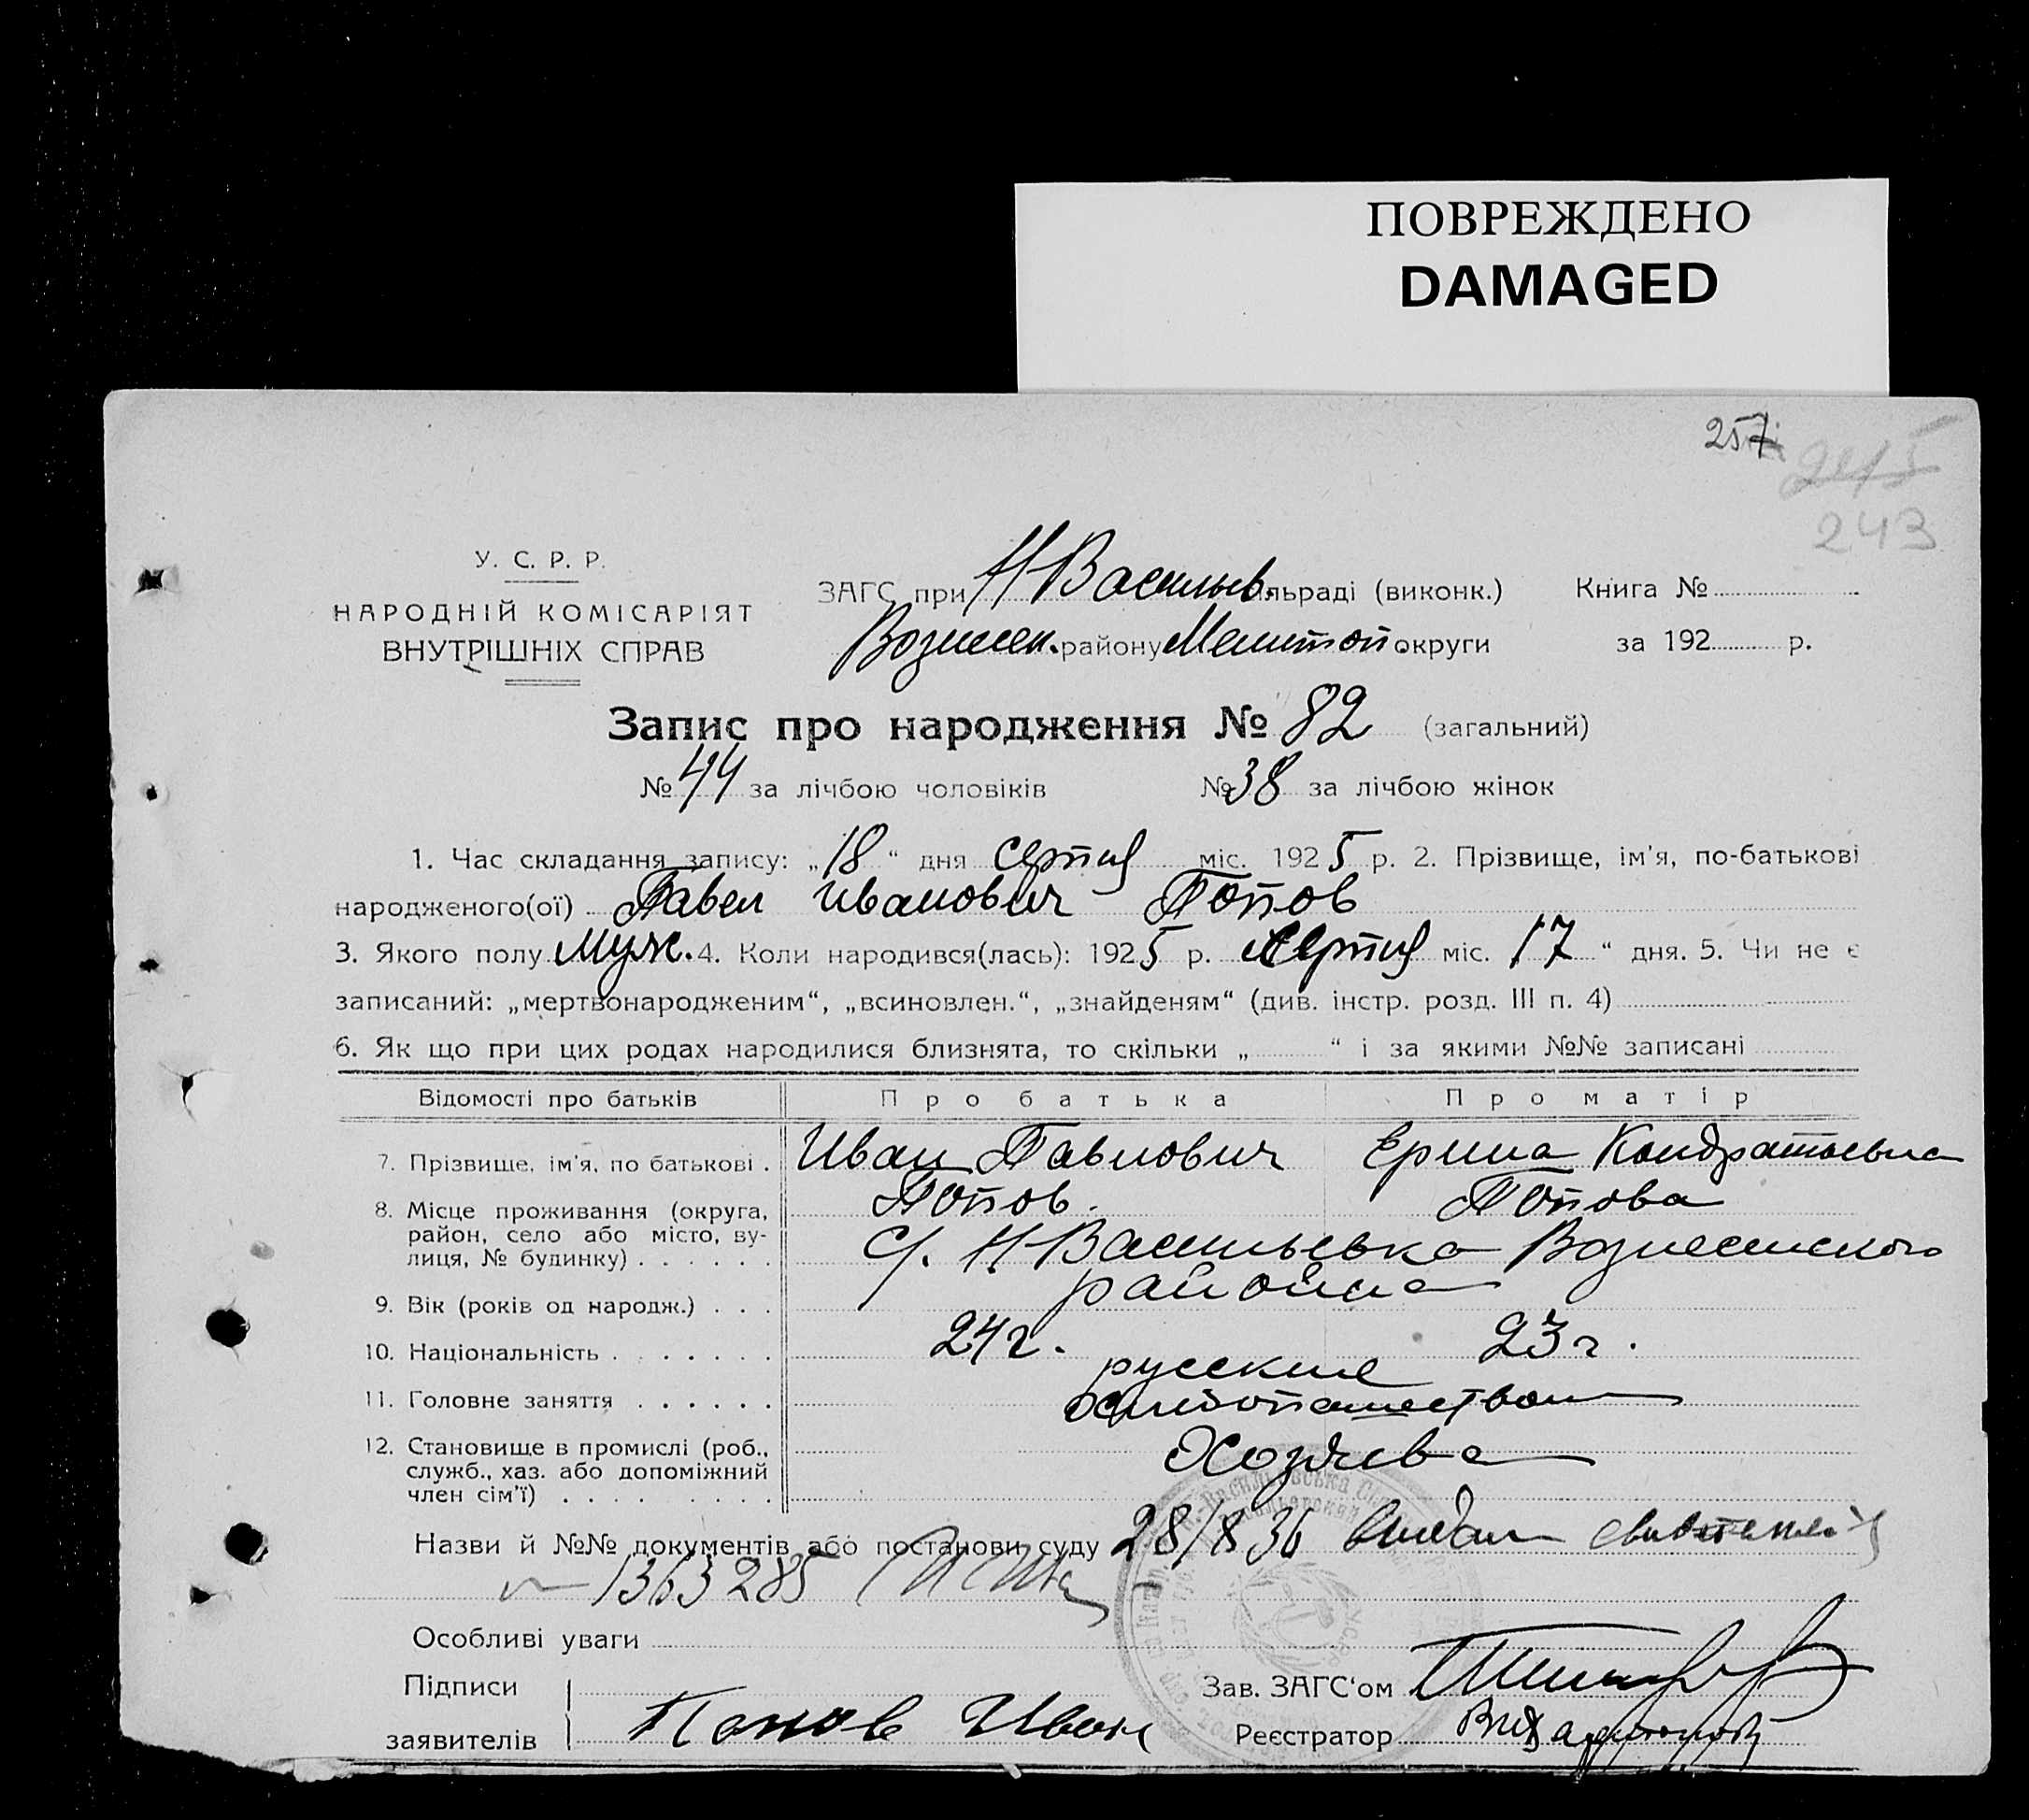 ПОВРЕЖДЕНО
DAMAGED
257
243
У. С. Р. Р.
НАРОДНІЙ КОМІСАРІЯТ
ВНУТРІШНІХ СПРАВ
ЗАГС при Н Васильев. льраді (виконк.) Книга №
Вознесен. району Мелитоп округи за 192 р.
Запис про народження № 82 (загальний)
№ 44 за лічбою чоловіків № 38 за лічбою жінок
1. Час складання запису: „18“ дня серпня міс. 1925 р. 2. Прізвище, ім'я, по-батькові
народженого(ої) Павел Иванович Попов
3. Якого полу Муж. 4. Коли народився(лась): 1925 р. серпня міс. 17 “ дня. 5. Чи не є
записаний: „мертвонародженим“, „всиновлен.“, „знайденям“ (див. інстр. розд. III п. 4)
6. Як що при цих родах народилися близнята, то скільки „ “ і за якими №№ записані
Відомості про батьків Про батька Про матір
7. Прізвище, ім'я, по батькові . Иван Павлович Ерина Кондратьевна
Попов. Попова
8. Місце проживання (округа,
район, село або місто, ву-
лиця, № будинку) . . . . . . С/. Н Васильевка Вознесенского
района
9. Вік (років од народж.) . . . 24 г. 23 г.
10. Національність . . . . . . . русские
11. Головне заняття . . . . . .
12. Становище в промислі (роб., Хозяева
служб., хаз. або допоміжний
член сім'ї) . . . . . . . . .
Назви й №№ документів або постанови суду 28/8 36
1363285
Особливі уваги
Підписи Зав. ЗАГС‘ом
заявителів Попов Иван Реєстратор